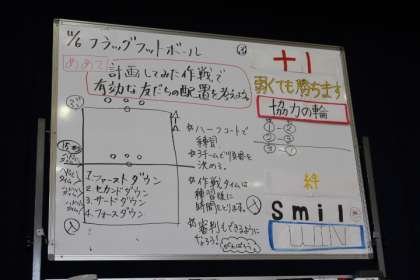 11/6 フラッグフットボール
めあて
計画してみた作戦で
有効な友だちの配置を考えよう。
☆ハーフコートで
練習
☆3チームで順番を
決める。
☆作戦タイムは
練習後に
時間をとります。
☆審判もできるように
なろう！
がんばろう
1.ファーストダウン
2.セカンドダウン
3.サードダウン
4.フォースダウン
+1
弱くても勝ちます
協力の輪
絆
Smil
WIN